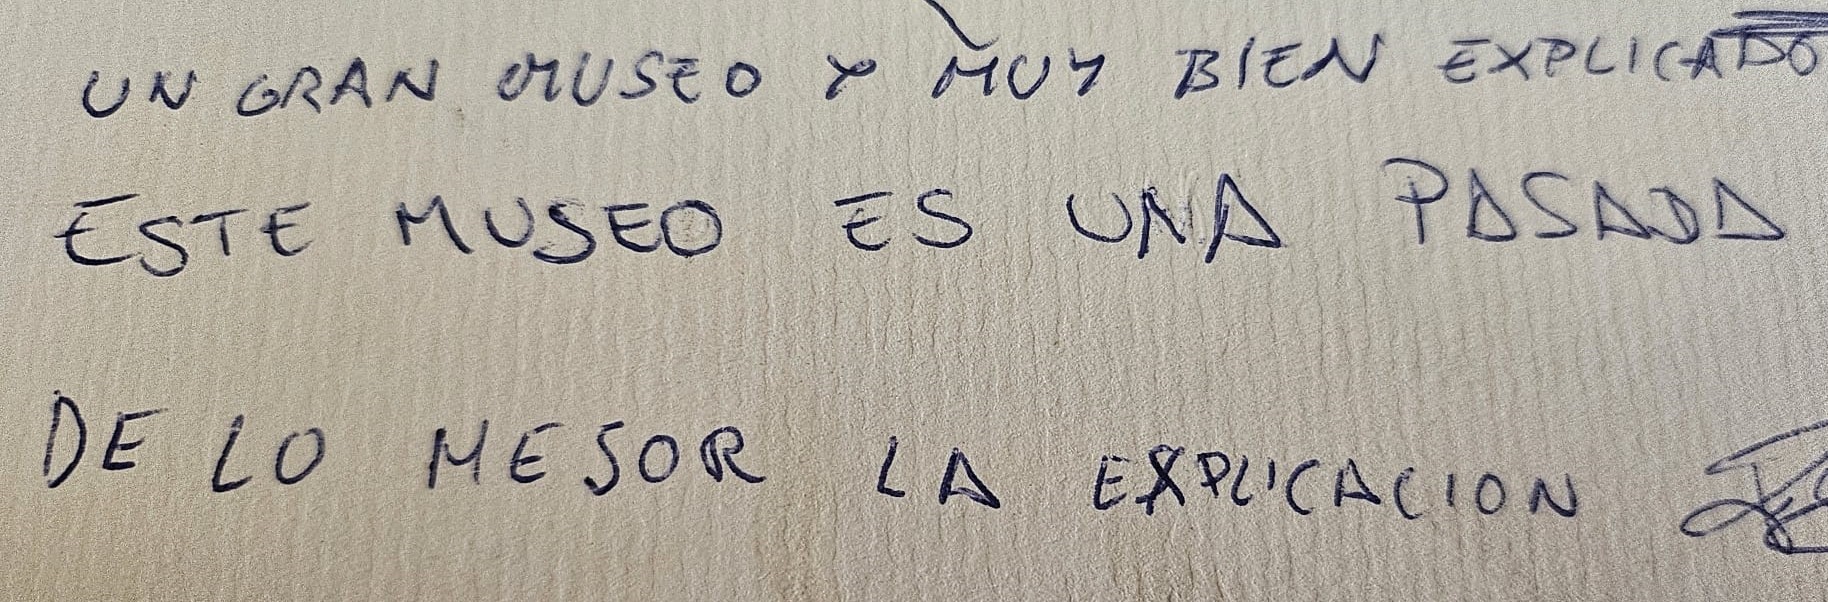 UN GRAN MUSEO Y MUY BIEN EXPLICADO
ESTE MUSEO ES UNA PASADA
DE LO MEJOR LA EXPLICACION